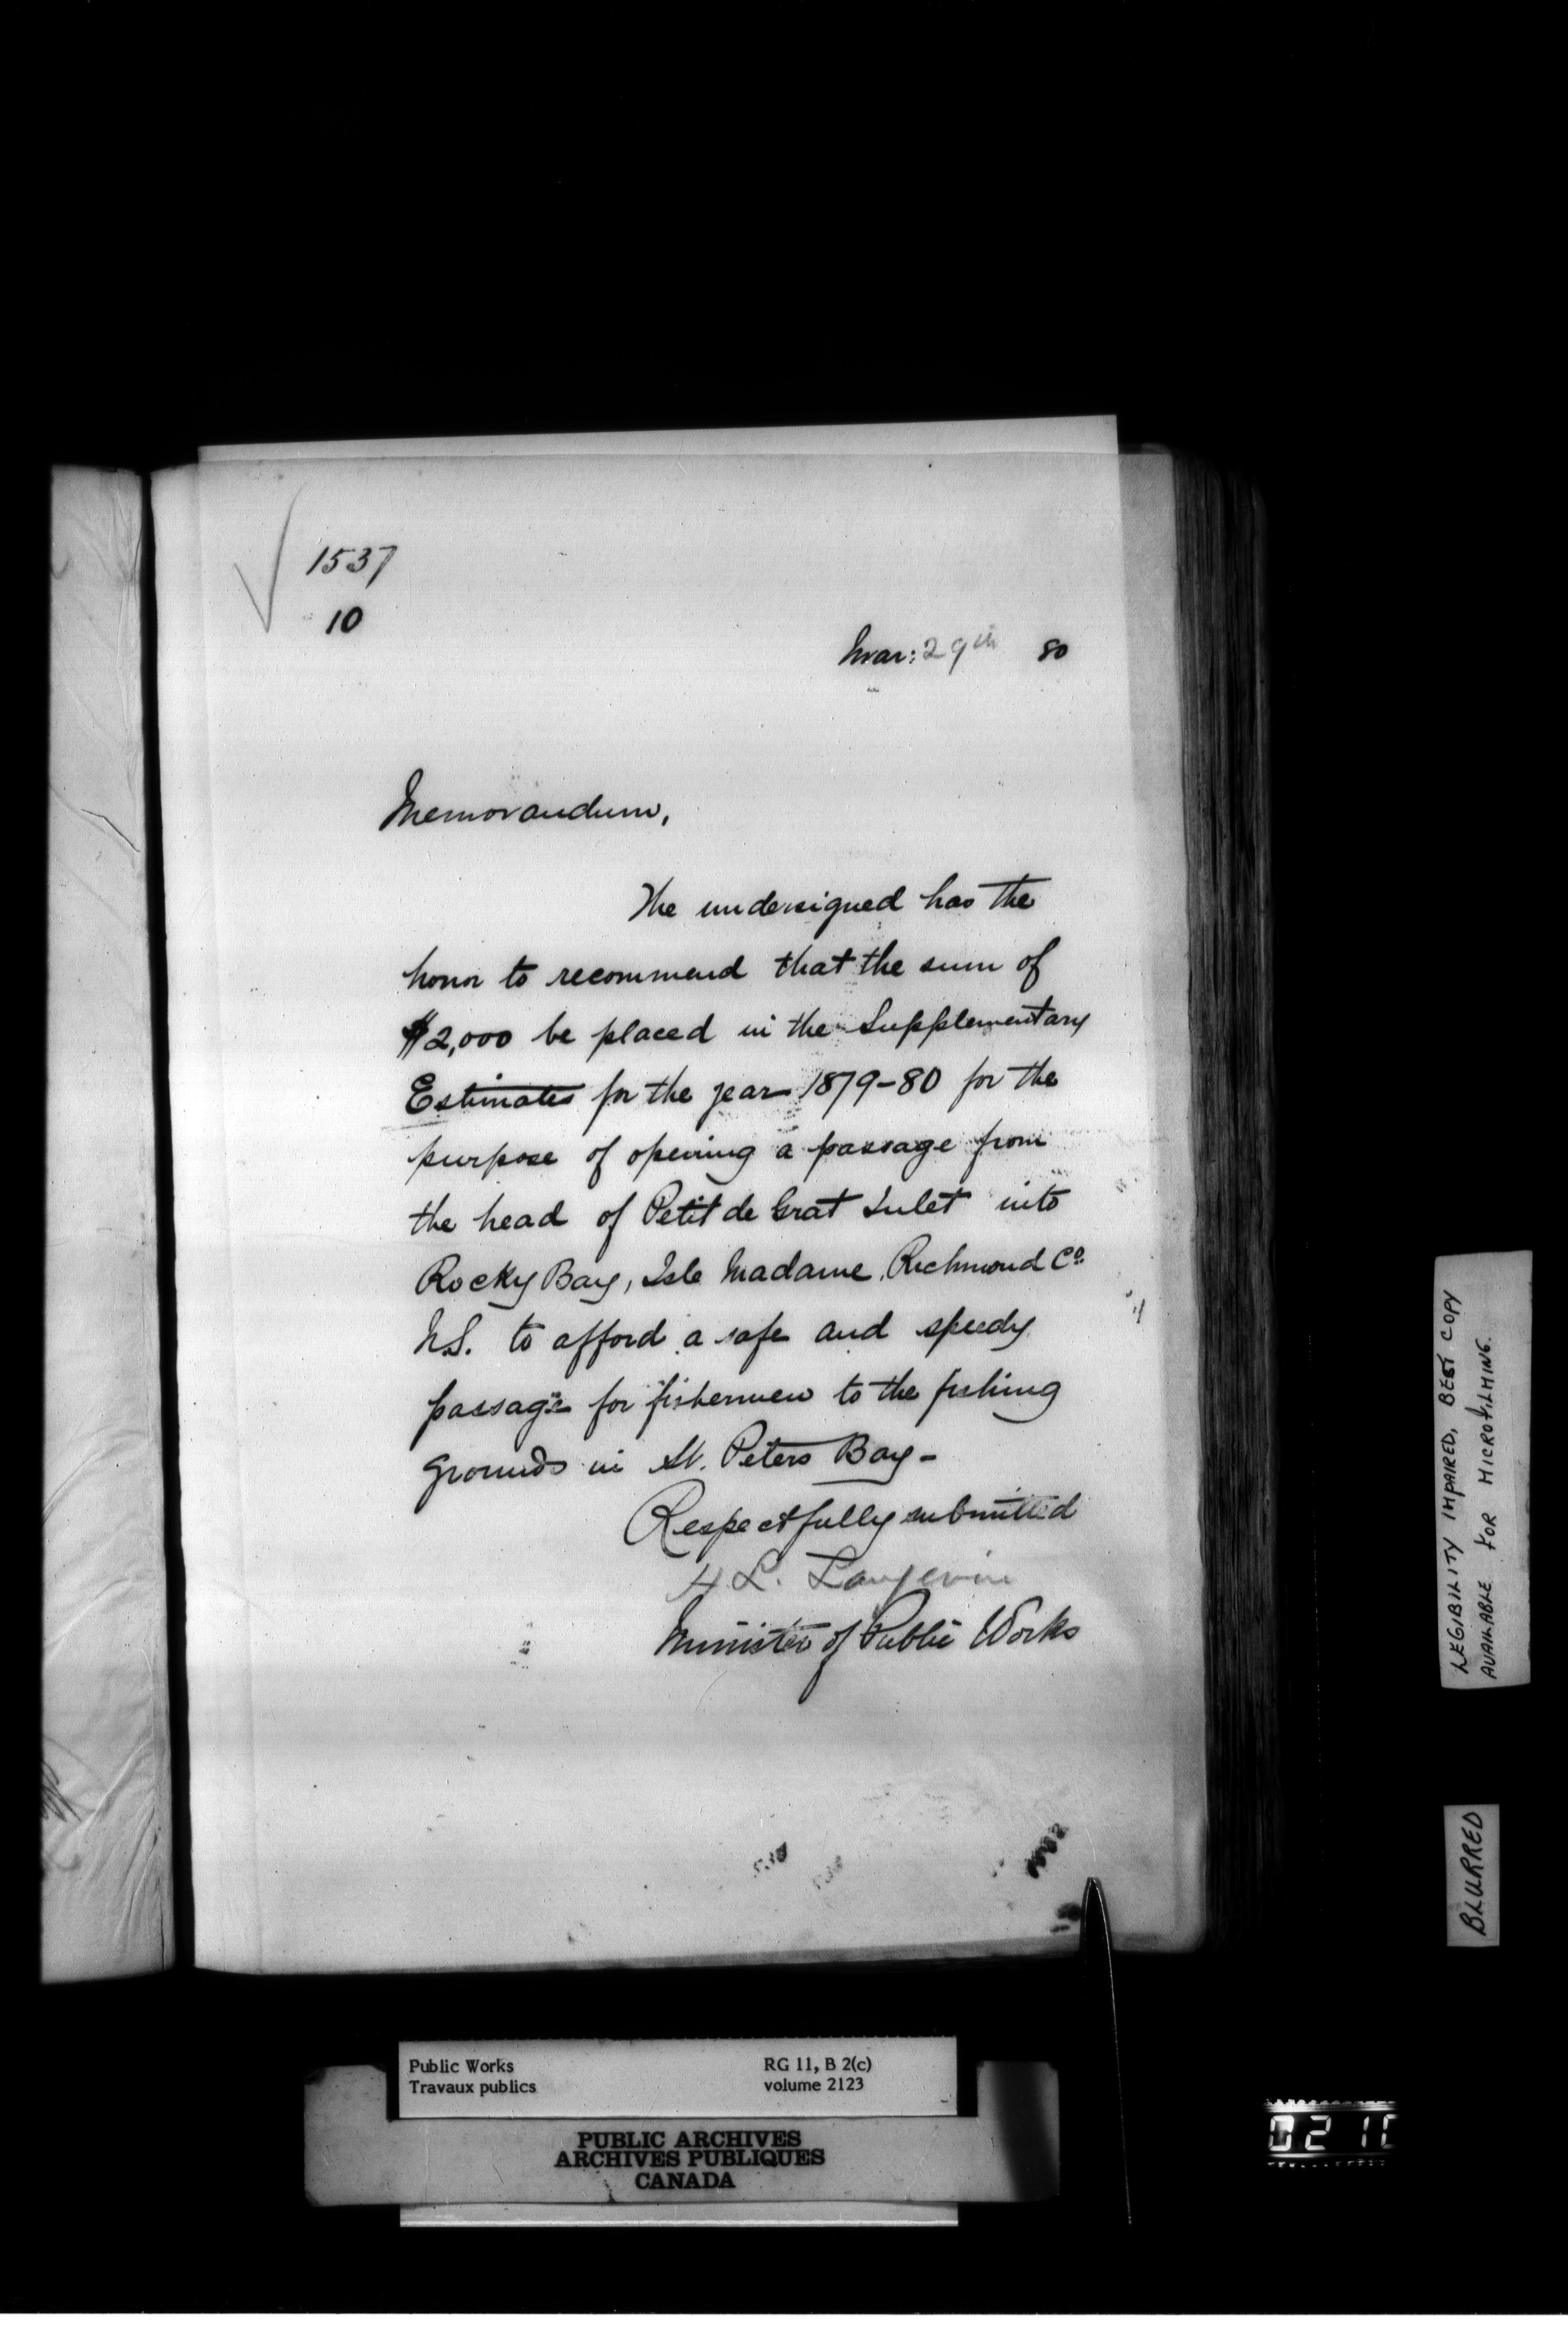 1537
10
Mar: 29th 80
Memorandum,
The undersigned has the
honor to recommend that the sum of
$2,000 be placed in the Supplementary
Estimates for the year 1879-80 for the
purpose of opening a passage from
the head of Petit de Grat Inlet into
Rocky Bay, Isle Madame, Richmond Co.
N.S. to afford a safe and speedy
passage for fishermen to the fishing
grounds in St. Peters Bay -
Respectfully submitted
H L. Langevin
Minister of Public Works
LEGIBILITY IMPAIRED, BEST COPY
AVAILABLE FOR MICROFILMING.
BLURRED
Public Works RG 11, B 2(c)
Travaux publics volume 2123
PUBLIC ARCHIVES
ARCHIVES PUBLIQUES
CANADA